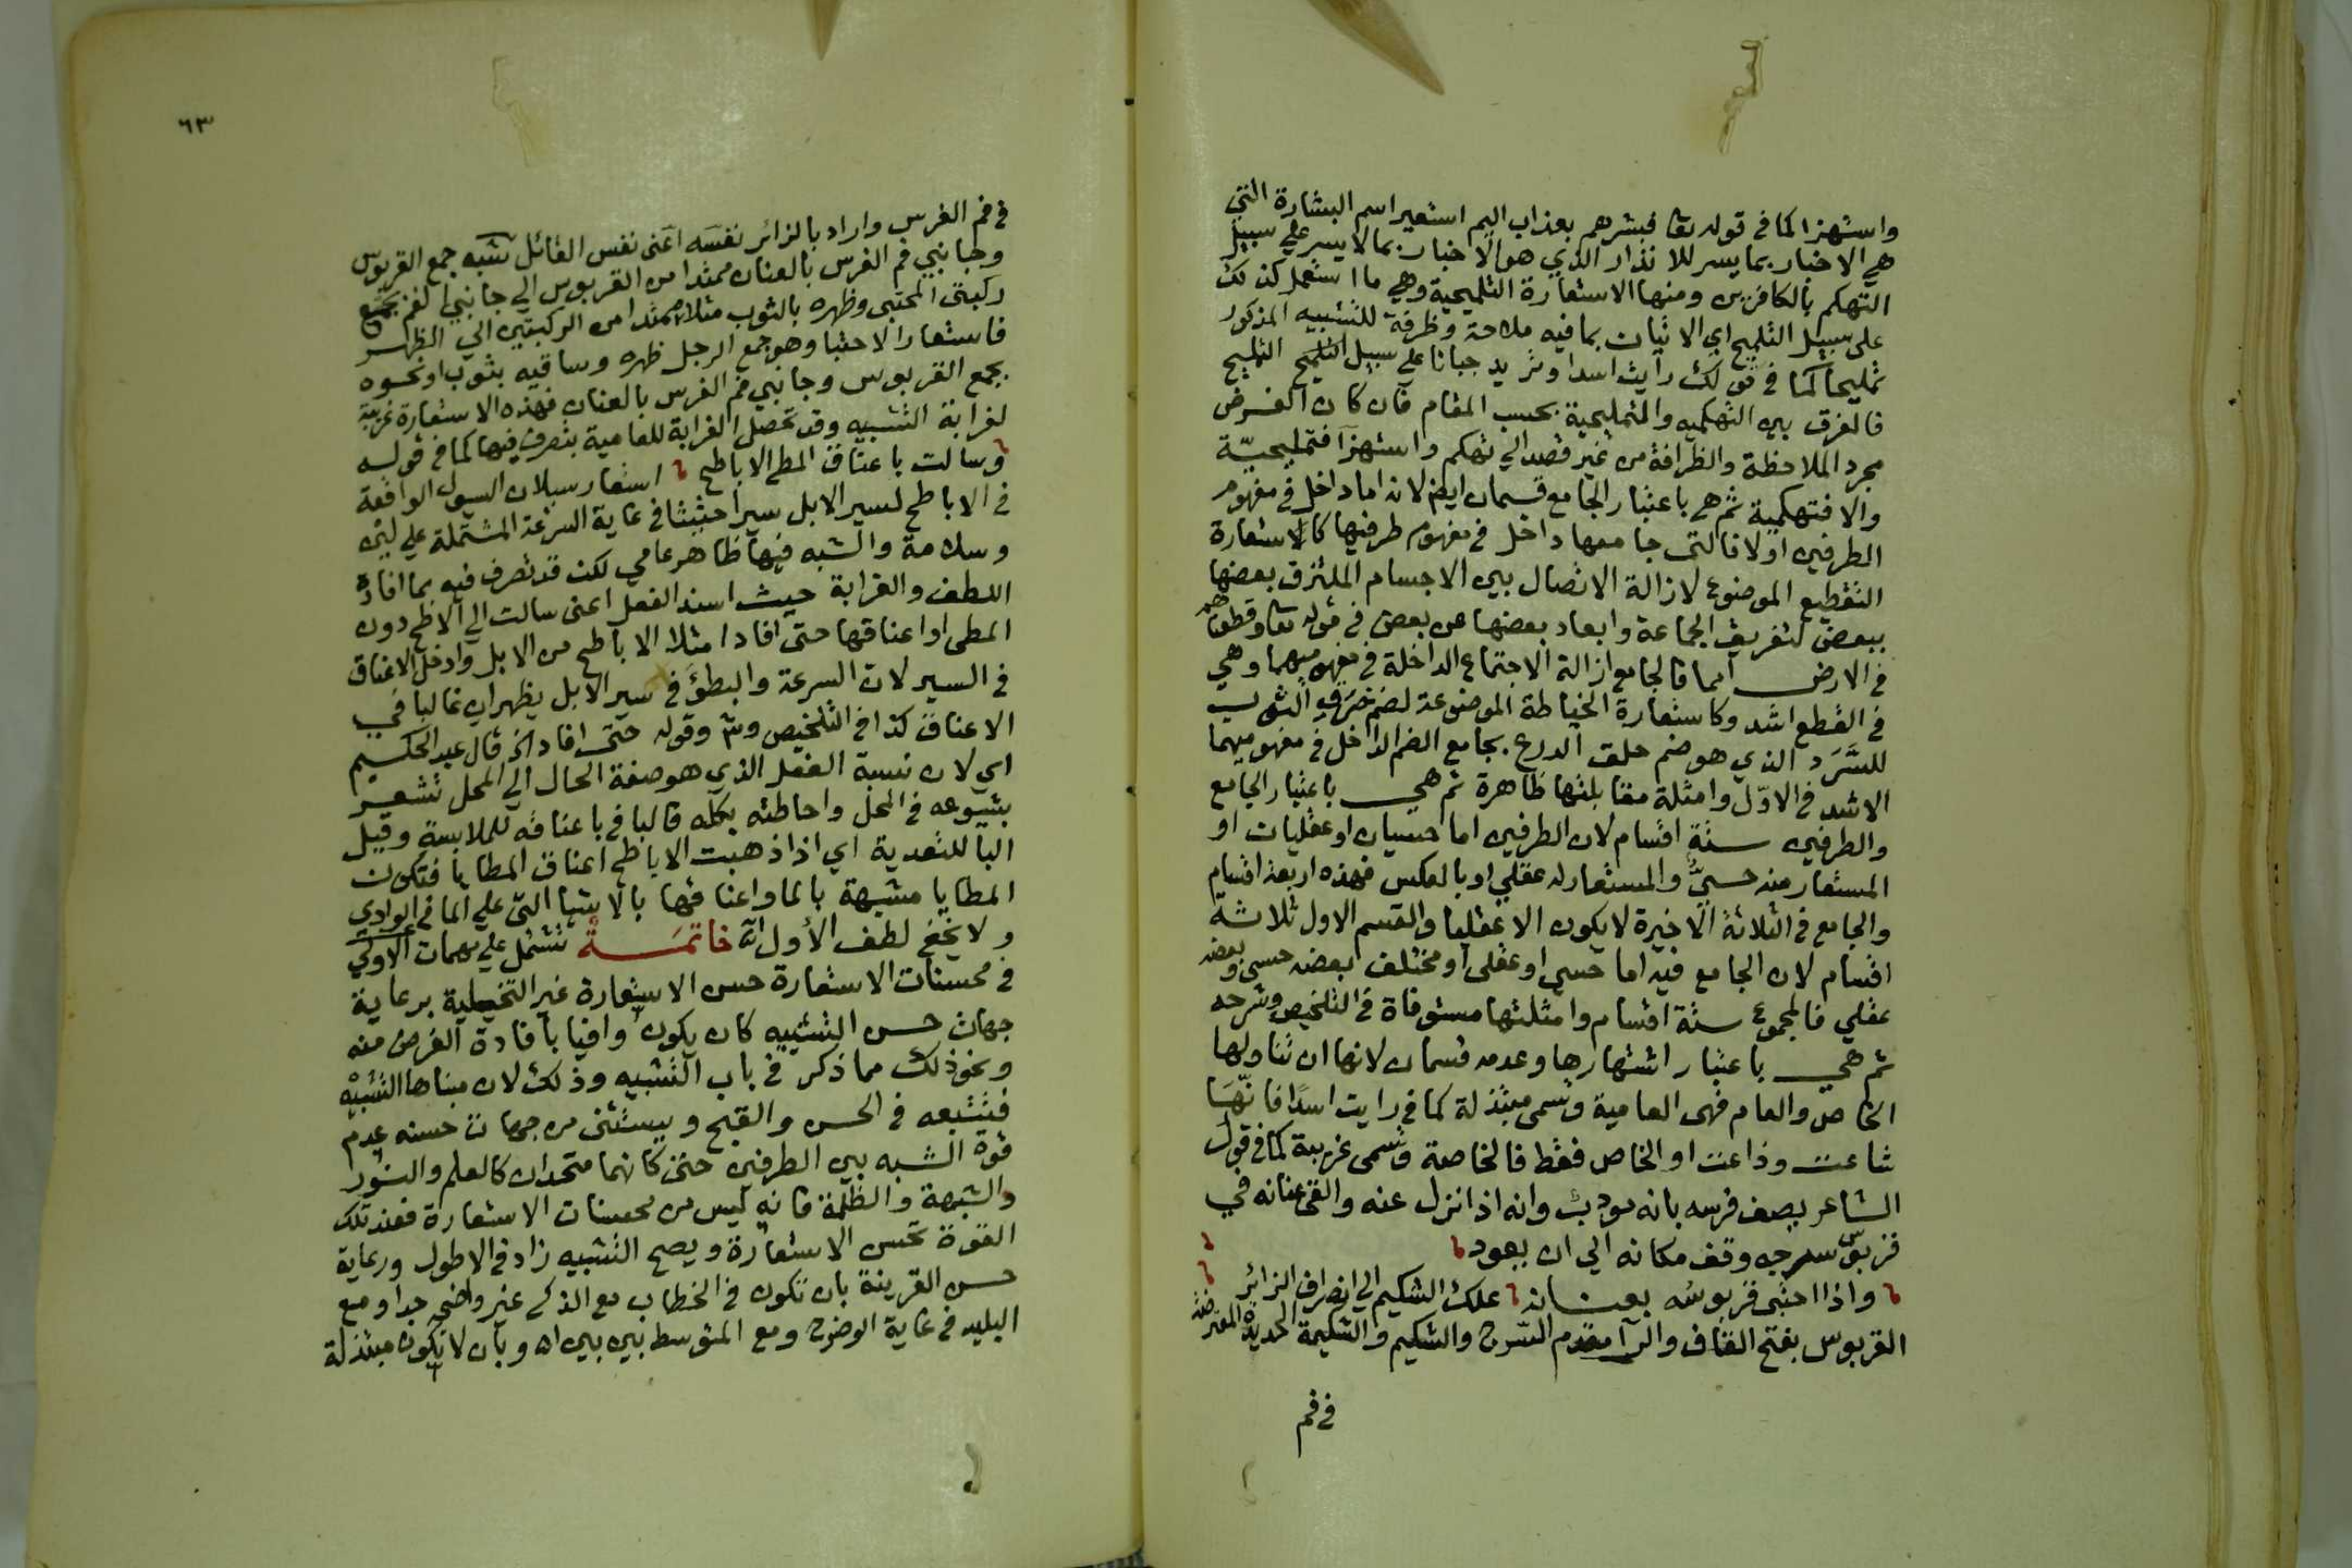 واستهزا كما في قوله تعا فبشرهم بعذاب اليم استعير اسم البشارة التي
هي الاخبار بما يسر للانذار الذي هو الاخبار بما لا يسر علي سبيل
التهكم بالكافرين ومنها الاستعارة التلميحية وهي ما استعمل كذلك
علي سبيل التلميح اي الاتيان بما فيه ملاحة وظرفة للتشبيه المذكور
تمليحا كما في قولك رأيت اسدا وتريد جبانا علي سبيل التلميح التمليح
فالفرق بين التهكميه والتمليحية بحسب المقام فان كان الغرض
مجرد الملاحظة والظرافة من غير قصد الي تهكم واستهزآ فتمليحيّة
والا فتهكمية ثم هي باعتبار الجامع قسمان ايض لانه اما داخل في مفهوم
الطرفين اولا فالتي جامعها داخل في مفهوم طرفيها كالاستعارة
التقطيع الموضوع لازالة الاتصال بين الاجسام الملتزق بعضها
ببعض لتفريق الجماعة وابعاد بعضها عن بعض في قوله تعا وقطعناهم
في الارض امما فالجامع ازالة الاجتماع الداخلة في مفهوميهما وهي
في القطع اشد وكاستعارة الخياطة الموضوعة لضم خرق الثوب
للسَّرَد الذي هو ضم حلق الدرع بجامع الضم الداخل في مفهوميهما
الاشد في الاوّل وامثلة مقابلتها ظاهرة ثم هي باعتبار الجامع
والطرفين ستة اقسام لان الطرفين اما حسيان او عقليان او
المستعار منه حسيٌّ والمستعار له عقلي او بالعكس فهذه اربعة اقسام
والجامع في الثلاثة الاخيرة لا يكون الا عقليا والقسم الاول ثلاثة
اقسام لان الجامع فيه اما حسي او عقلي او مختلف بعضه حسي وبعضه
عقلي فالمجموع ستة اقسام وامثلتها مستوفاة في التلخيص وشرحه
ثم هي باعتبار اشتهارها وعدمه قسمان لانها ان تناولها
الخاص والعام فهي العامية وتسمى مبتذلة كما في رايت اسدًا فانّها
شاعت وذاعت او الخاص فقط فالخاصة وتسمى غريبة كما في قول
الشاعر يصف فرسه بانه مودب وانه اذا نزل عنه والقي عنانه في
قربوس سرجه وقف مكانه الي ان يعود
واذا احتبى قربوسه بعنانه علك الشكيم الي انصراف الزائر
القربوس بفتح القاف والرآ مقدم السرج والشكيم والشكيمة الحديدة المعترضة
في فم
٦٣
في فم الفرس واراد بالزائر نفسه اعني نفس القائل شبه جمع القربوس
وجانبي فم الفرس بالعنان ممتدا من القربوس الي جانبي الفم بجمع
ركبتى المحتبى وظهره بالثوب مثلا ممتدا من الركبتين الي الظهر
فاستعار الاحتبا وهو جمع الرجل ظهره وساقيه بثوب او نحوه
بجمع القربوس وجانبي فم الفرس بالعنان فهذه الاستعارة غريبة
لغرابة التشبيه وقد تحصل الغرابة للعامية بتصرف فيها كما في قوله
وسالت باعناق المطي الاباطح استعار سيلان السيول الواقعة
في الاباطح لسير الابل سيرا حثيثا في غاية السرعة المشتملة علي لين
وسلامة والشبه فيها ظاهر عامي لكن قد تصرف فيه بما افاده
اللطف والغرابة حيث اسند الفعل اعني سالت الي الاباطح دون
المطى او اعناقها حتى افاد امتلا الاباطح من الابل وادخل الاعناق
في السير لان السرعة والبطؤ في سير الابل يظهران غالبا في
الاعناق كذا في التلخيص وقوله حتى افاد الخ قال عبد الحكيم
اي لان نسبة الفعل الذي هو صفة الحال الي المحل تشعر
بشيوعه في المحل واحاطته بكله فالبا في باعناقه للملابسة وقيل
البا للتعدية اي اذا ذهبت الاباطح اعناق المطايا فتكون
المطايا مشبهة بالما واعناقها بالاشيا التي علي الما في الوادي
ولا يخفي لطف الأول خاتمة تشتمل علي مهمات الاولي
في محسنات الاستعارة حسن الاستعارة غير التخييلية برعاية
جهات حسن التشبيه كان يكون وافيا بافادة الغرض منه
ونحو ذلك مما ذكر في باب التشبيه وذلك لان مبناها التشبيه
فتتبعه في الحسن والقبح ويستثنى من جهات حسنه عدم
قوة الشبه بين الطرفين حتى كانهما متحدان كالعلم والنور
والشبهة والظلمة فانه ليس من محسنات الاستعارة فعند تلك
القوة تحسن الاستعارة ويصح التشبيه زاد في الاطول ورعاية
حسن القرينة بان تكون في الخطاب مع الذكي غير واضحه جدا ومع
البليد في غاية الوضوح ومع المتوسط بين بين اه وبان لا تكون مبتذلة